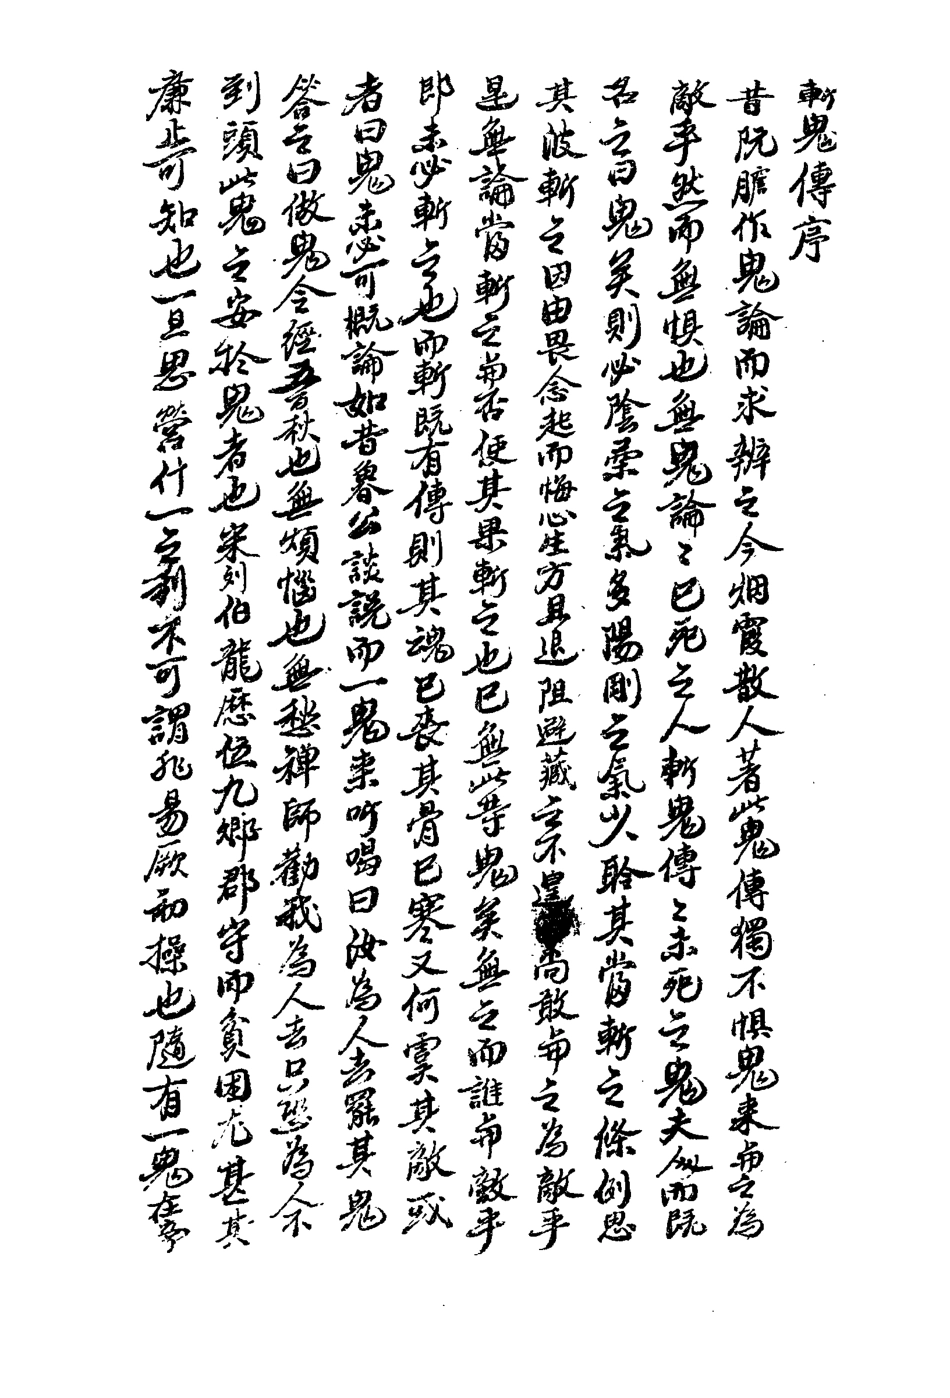 斬鬼傳序
昔阮瞻作鬼論而求辨之今烟霞散人著此鬼傳獨不惧鬼来与之為
敵乎然而無惧也無鬼論〻已死之人斬鬼傳〻未死之鬼夫人而既
名之曰鬼矣則必陰柔之氣多陽剛之氣少聆其當斬之條例思
其波斬之因由畏念起而悔心生方且退阻避藏之不遑尚敢与之為敵乎
是無論當斬之与否使其果斬之也已無此等鬼矣無之而誰与敵乎
即未必斬之也而斬既有傳則其魂已丧其骨已寒又何虞其敵或
者曰鬼未必可概論如昔黎公談說而一鬼来吓喝曰汝為人去罷其鬼
答之曰做鬼今經五百秋也無煩惱也無愁禅師勸我為人去只恐為人不
到頭此鬼之安於鬼者也宋刘伯龍歷位九鄉郡守而貧困尤甚其
廉靜可知也一旦思營什一之利不可謂非易厥初操也随有一鬼在旁